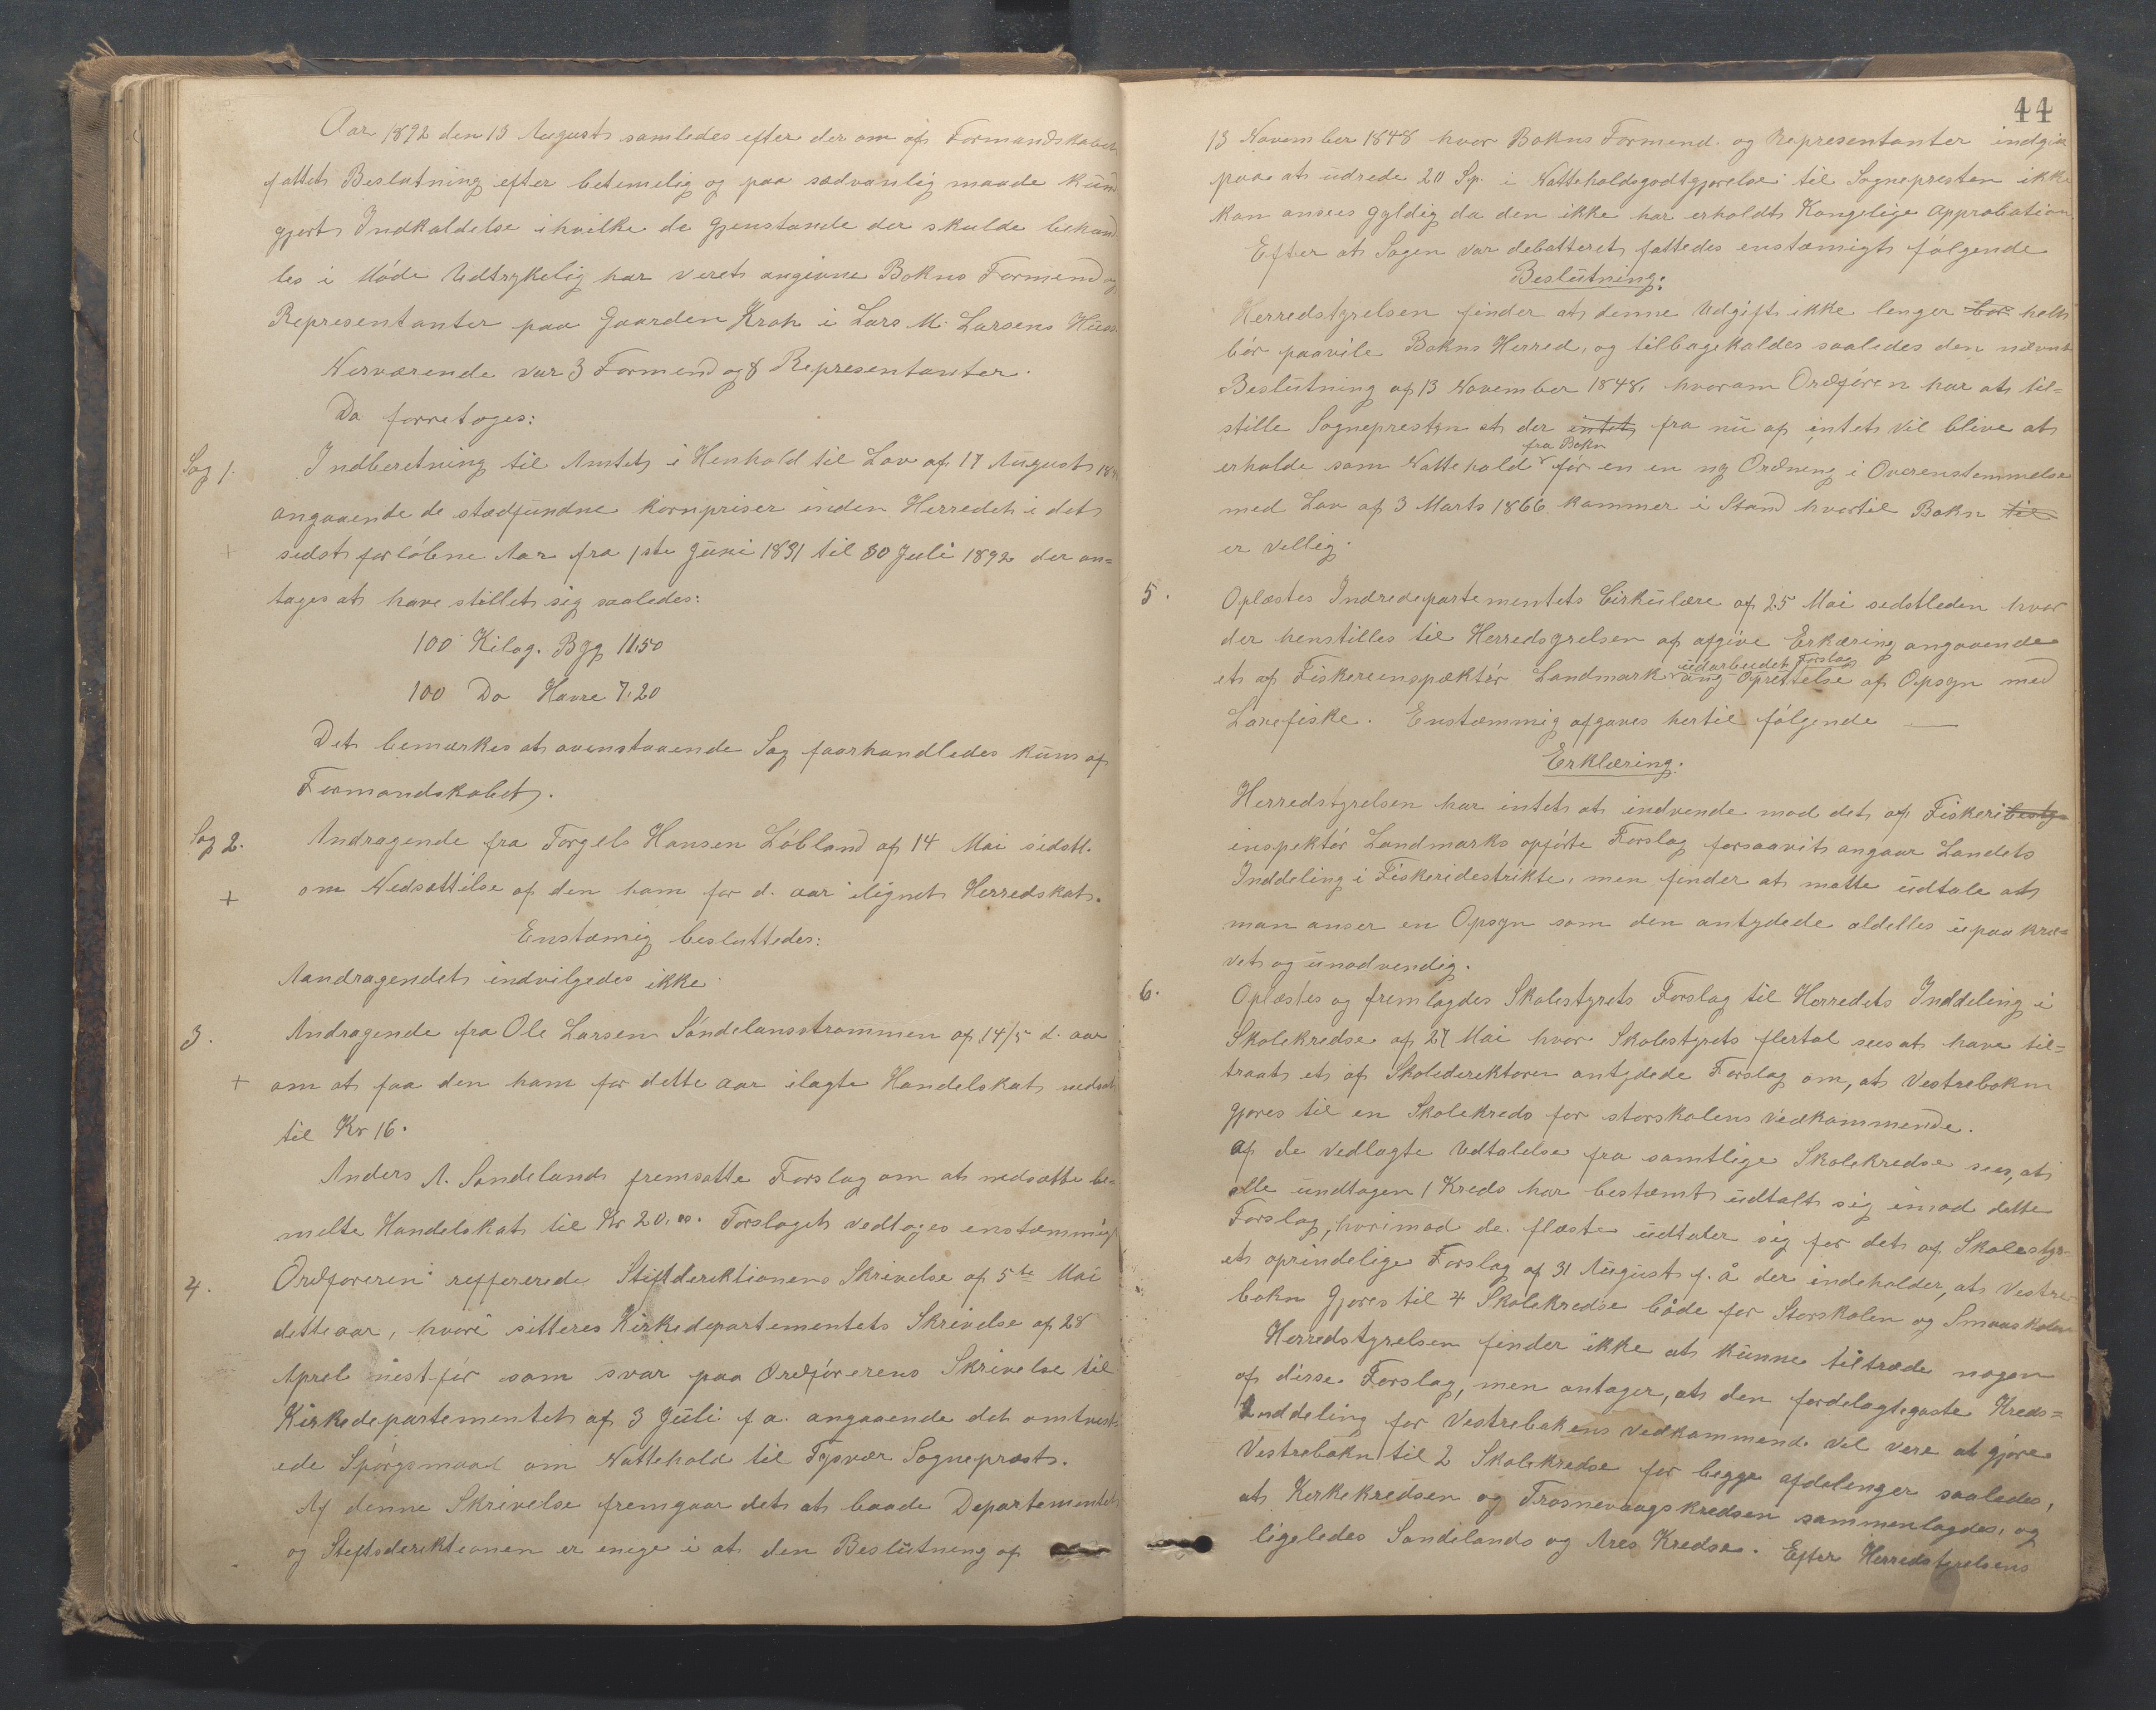 Aar 1892 den 13 August samledes efter der om af Formandskabet
fattet Beslutning efter betemelig og paa sædvanlig maade kund
gjort Indkaldelse i hvilke de Gjenstande der skulde behand
les i Möde Udtrykelig har veret angivne Bokns Formend og
Representanter paa Gaarden Kroh i Lars M. Larsens Huss
Nerværende var 3 Formend og 8 Representanter.
Da forretoges:
Sag 1. Indberetning til Amtet i Henhold til Lov af 17 August
angaaende de stædfundne kornpriser inden Herredet i det
+ sidst forløbne Aar fra 1ste Juni 1891 til 30 Juli 1892 der an=
tages at have stillet sig saaledes:
100 Kilog. Byg 11.50
100 Do Havre 7.20
Det bemærkes at ovenstaaende Sag faarhandledes kuns af
Formandskabet.
Sag 2. Andragende fra Torgels Hansen Löbland af 14 Mai sidstl.
+ om Nedsættilse af den ham for d. aar ilignet Herredskat.
Enstæmig besluttedes:
Aandragendet indvilgedes ikke
3. Andragende fra Ole Larsen Söndelansstrommen af 14/5 d. aar
+ om at faa den ham for dette aar ilagte Handelskat nedsat
til Kr 16.
Anders A. Sandelands fremsatte Forslag om at nedsætte be=
melte Handelskat til Kr 20.00. Forslaget vedtoges enstæmmig
4. Ordføreren reffererede Stiftderektionens Skrivelse af 5te Mai
dette aar, hvori sitteres Kirkedepartementets Skrivelse af 28
Aprel nest før som svar paa Ordførerens Skrivelse til
Kirkedepartementet af 3 Juli f. a. angaaende det omtvist=
ede Spörgsmaal om Nattehold til Tysvær Sogneprest.
Af denne Skrivelse fremgaar det at baade Departementet
og Steftsderektionen er enige i at den Beslutning af
44
13 November 1848 hvor Bokns Formend. og Representanter indgik
paa at udrede 20 Sp. i Natteholdsgodtgjørelse til Sognepresten ikke
kan ansees gyldig da den ikke har erholdt Kongelige Approbation
Efter at Sagen var debatteret fattedes enstæmigt følgende
Beslutning:
Herredstyrelsen finder at denne Udgift ikke lenger bør helt
bör paavile Bokns Herred, og tilbagekaldes saaledes den nævnt
Beslutning af 13 November 1848, hvorom Ordføren har at til=
stille Sognepresten at der intet fra nu af intet vil blive at
fra Bokn
erholde som Nattehold før en en ny Ordning i Overenstemmelse
med Lov af 3 Marts 1866 kommer i Stand hvortil Bokn til
er Vellig.
5. Oplæstes Indredepartementets Cirkulære af 25 Mai sedstleden hvor
der henstilles til Herredsgrelsen af afgive Erkæring angaaende
udarbeidet Forslag
et af Fiskereenspæktör Landmark ang Oprettelse af Opsyn med
Laxefiske. Enstæmmig afgaves hertil følgende
Erklæring.
Herredstyrelsen har intet at indvende mod det af Fiskeribesty
inspektör Landmarks opførte Forslag forsaavit angaar Landets
Inddeling i Fiskeridestrikte, men finder at matte udtale at
man anser en Opsyn som den antydede aldelles upaakræ=
vet og unødvendig.
6. Oplæstes og fremlagdes Skolestyrets Forslag til Herredets Inddeling i
Skolekredse af 27 Mai hvor Skolestyrets flertal sees at have til=
traat et af Skolederektoren antydede Forslag om, at Vestrebokn
gjøres til en Skolekreds for storskolens Vedkommende.
Af de vedlagte Udtalelse fra samtlige Skolekredse sees, at
alle undtagen 1 Kreds har bestæmt udtalt sig imod dette
Forslag, hvorimod de fleste udtaler sig for det af Skolestyr-
et oprindelige Forslag af 31 August f. å der indeholder, at Vestre
bokn gjøres til 4 Skolekredse både for Storskolen og Smaaskolen
Herredstyrelsen finder ikke at kunne tiltræde nogen
af disse Forslag, men antager, at den fordelagtegaste Kreds=
Inddeling for Vestrebokens vedkommende vil vere at gjøre
Vestrebokn til 2 Skolekredse for begge afdelenger saaledes,
at Kerkekredsen og Trosnevaagskredsen sammenlagdes, og
ligeledes Sandelands og Ares Kredse. Efter Herredstyrelsens